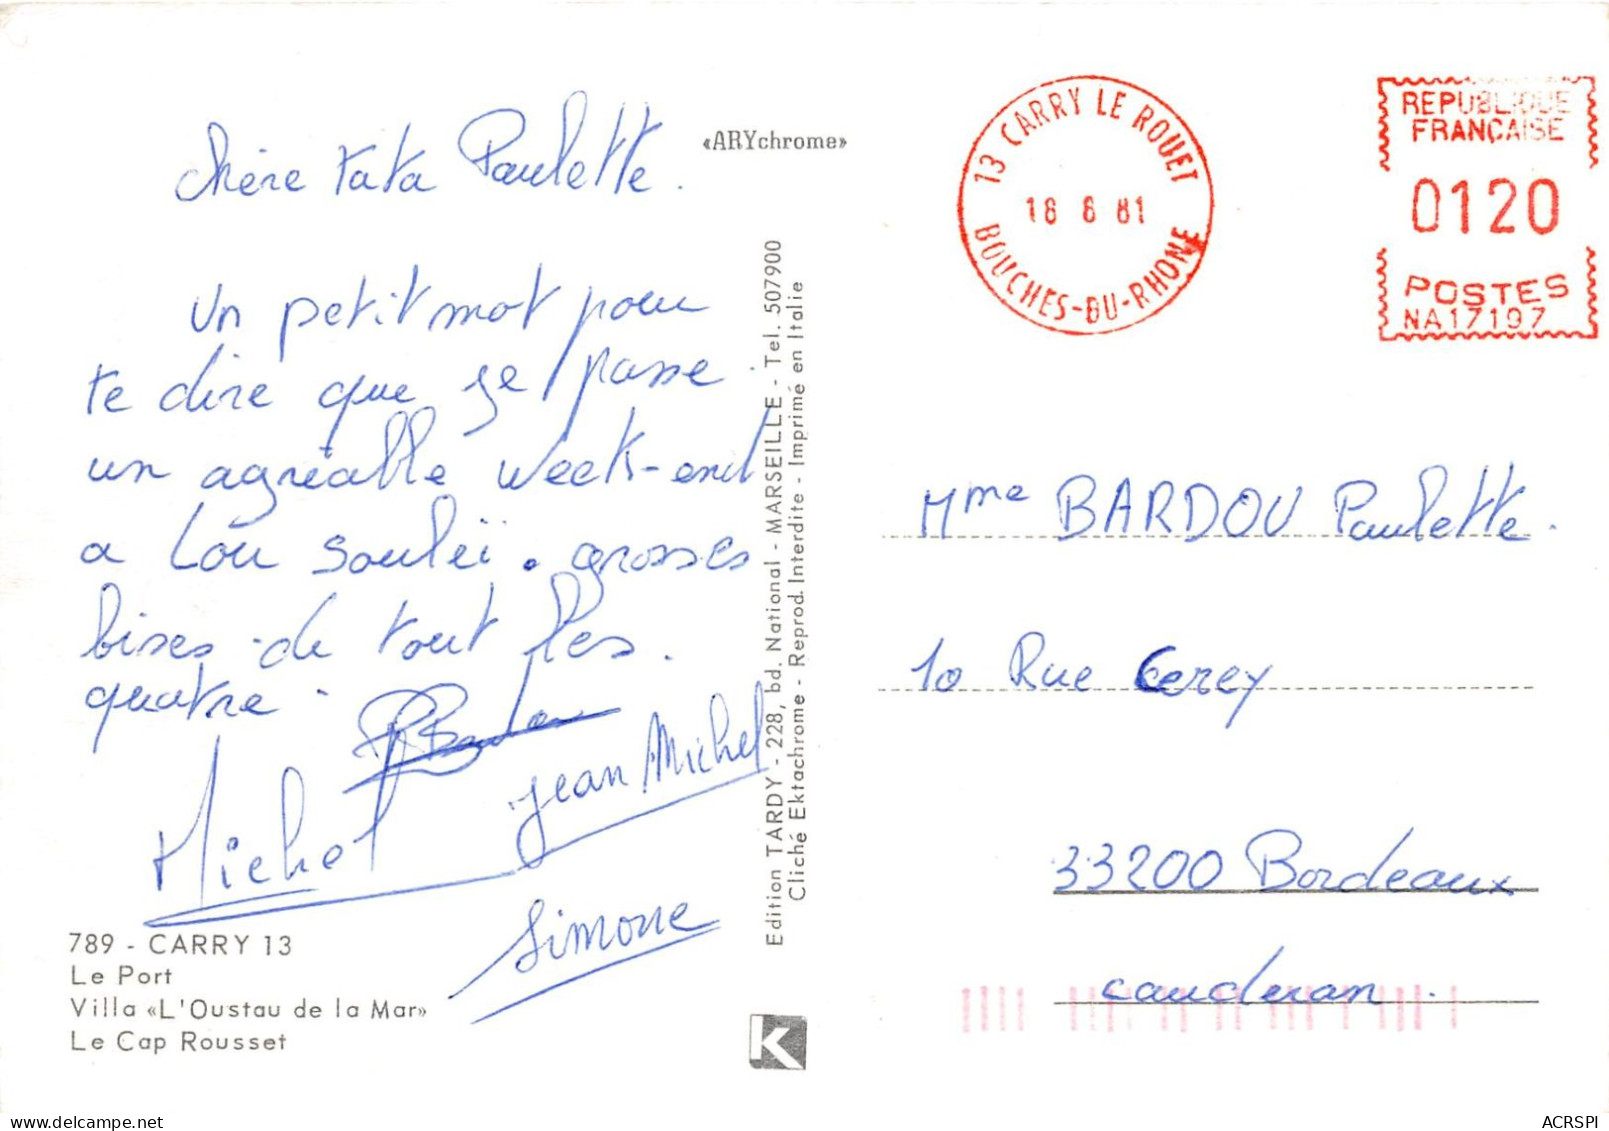 chère tata Paulette.
Un petit mot pour
te dire que je passe
un agréable week-end
a Lou Souleï. grosses
bises de tout les
quatre.
Michel
Jean Michel
Simone
789 - CARRY 13
Le Port
Villa «L'Oustau de la Mar»
Le Cap Rousset
«ARYchrome»
Edition TARDY - 228, bd. National - MARSEILLE - Tel. 507900
Cliché Ektachrome - Reprod. Interdite - Imprimé en Italie
K
13 CARRY LE ROUET
18 8 81
BOUCHES-DU-RHONE
REPUBLIQUE
FRANÇAISE
0120
POSTES
NA17197
Mme BARDOU Paulette.
10 Rue Cerey
33200 Bordeaux
cauderan.
delcampe.net
ACRSPI